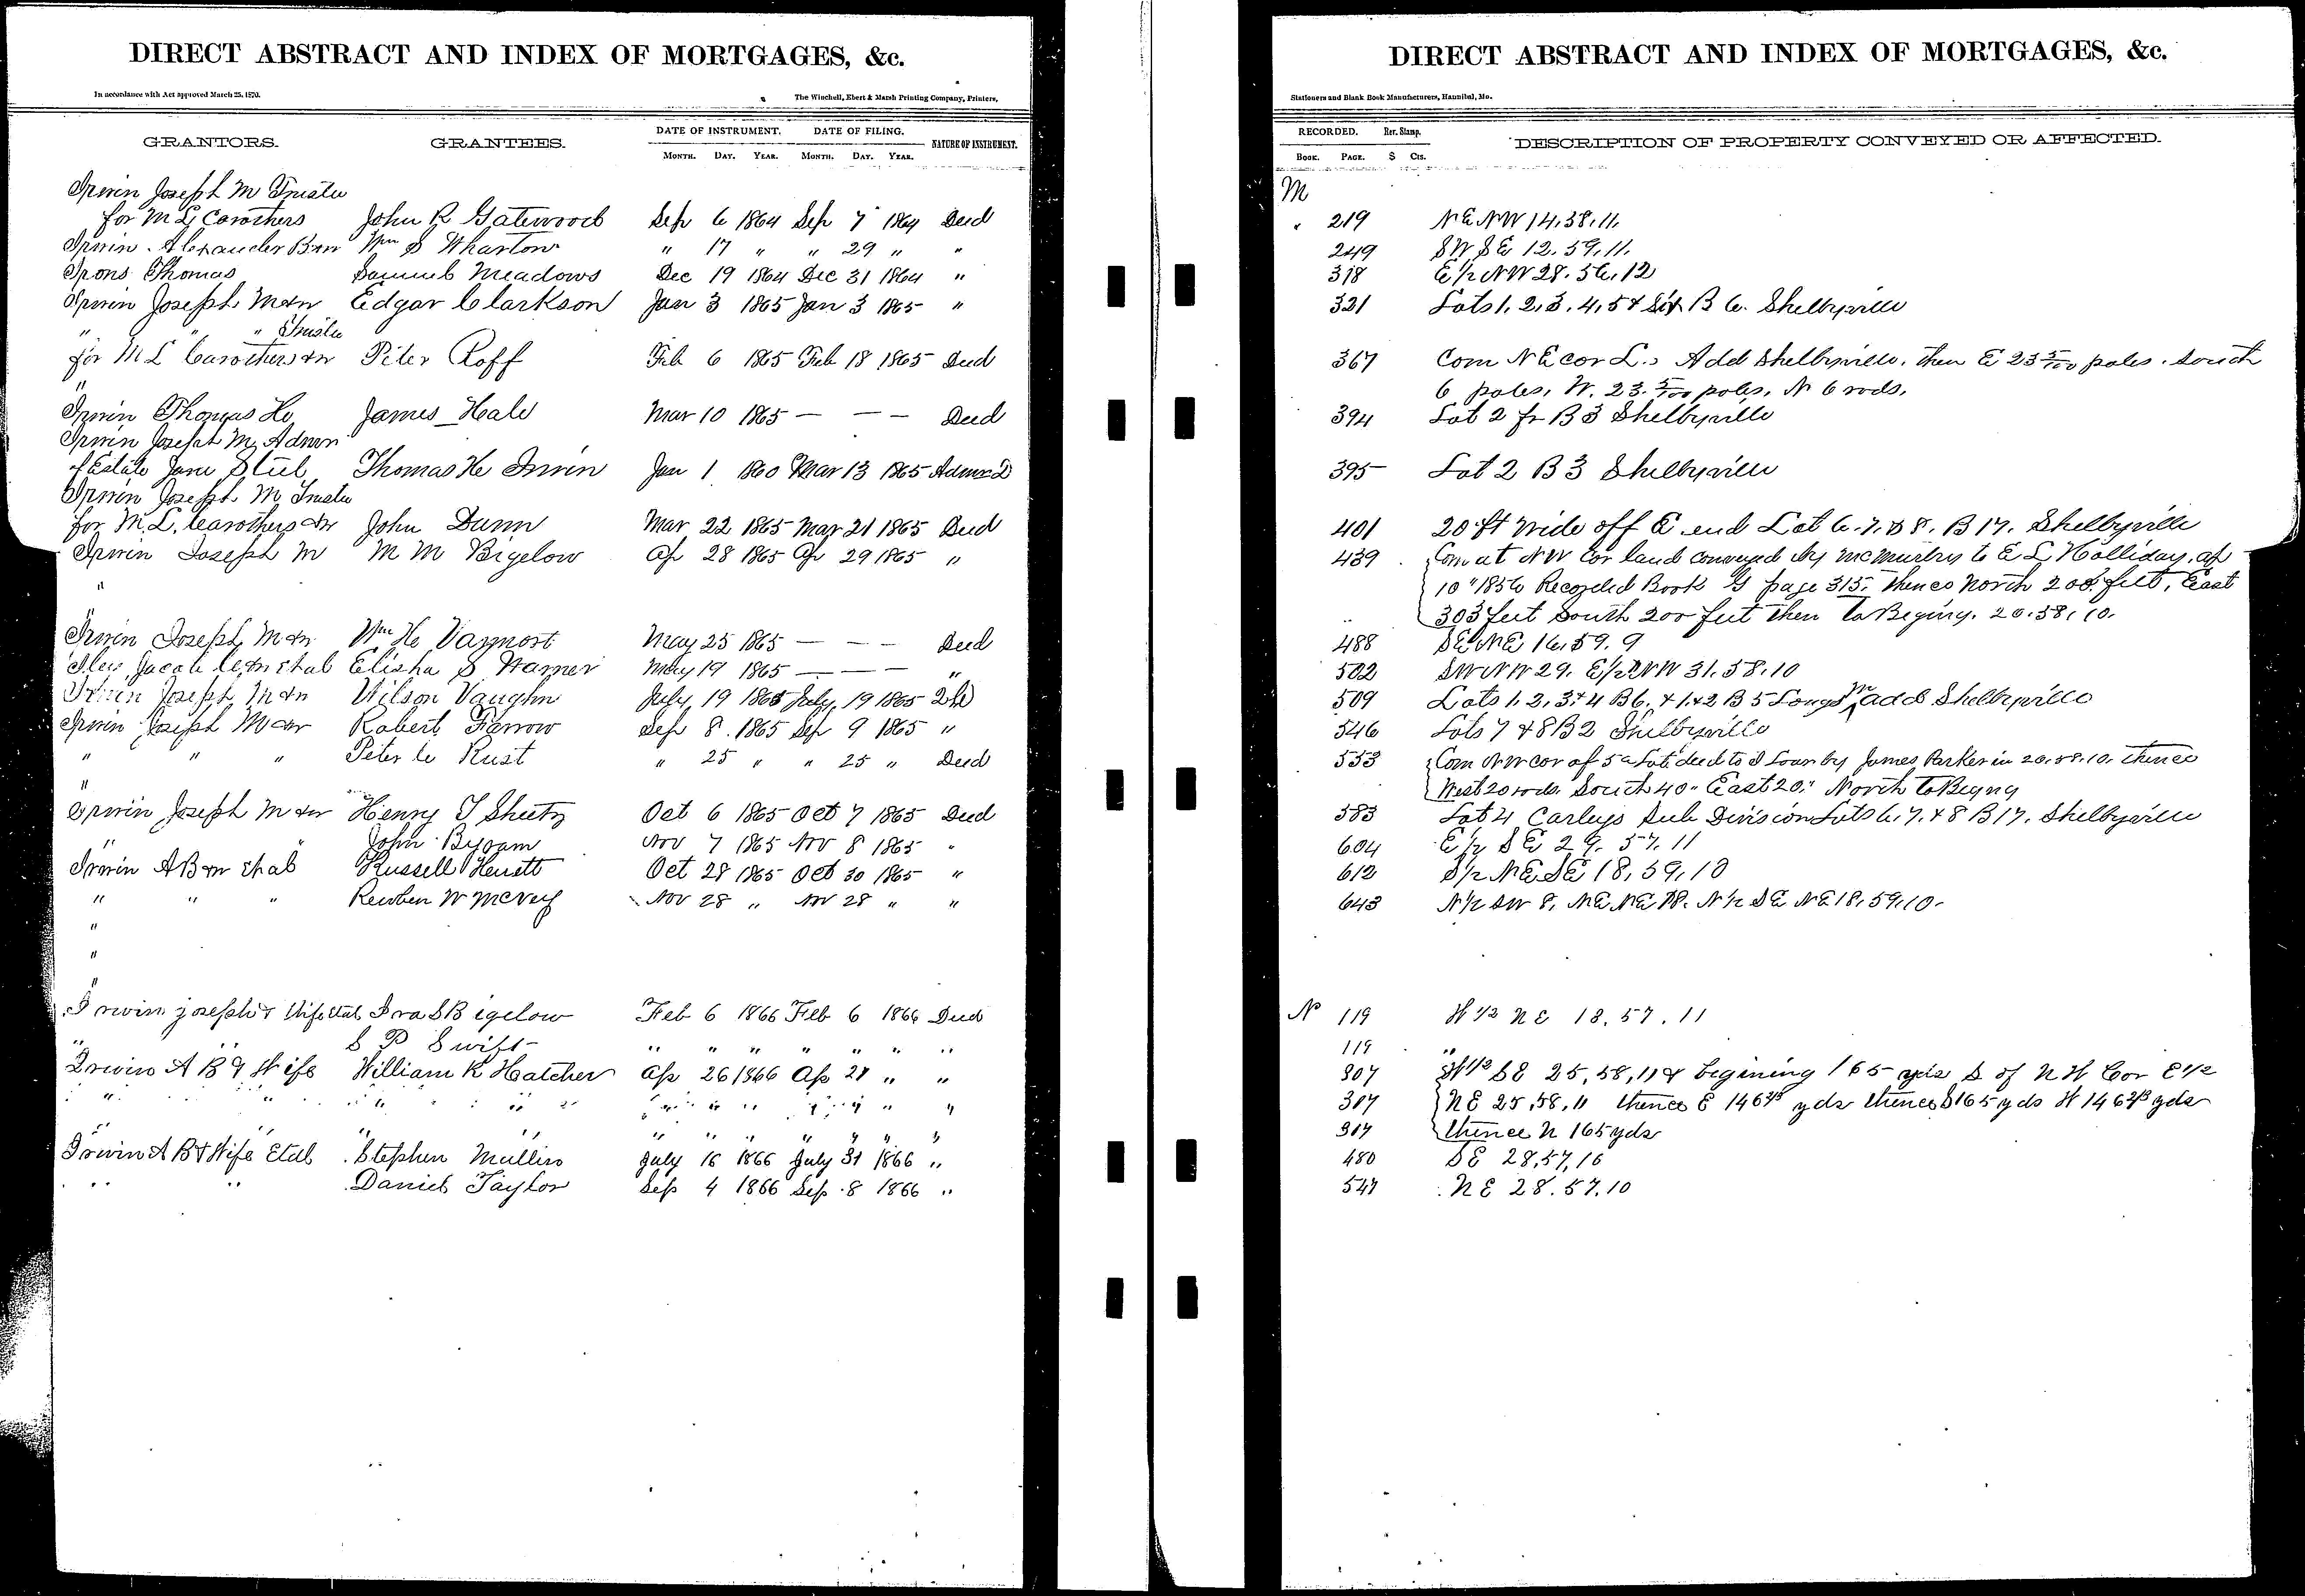 DIRECT ABSTRACT AND INDEX OF MORTGAGES, &c.
In accordance with Act approved March 25, 1870.
The Winchell, Ebert & Marsh Printing Company, Printers,
GRANTORS. GRANTEES. DATE OF INSTRUMENT. DATE OF FILING. NATURE OF INSTRUMENT.
MONTH. DAY. YEAR. MONTH. DAY. YEAR.
Irwin Joseph M Trustee
for M L Carothers John R Gatewood Sep 6 1864 Sep 7 1864 Deed
Irwin Alexander B & w Wm S Wharton " 17 " " 29 " "
Irons Thomas Samuel Meadows Dec 19 1864 Dec 31 1864 "
Irwin Joseph M & w Edgar Clarkson Jan 3 1865 Jan 3 1865 "
" " " Trustee
for M L Carothers & w Peter Roff Feb 6 1865 Feb 18 1865 Deed
"
Irwin Thomas H James Hale Mar 10 1865 — — — Deed
Irwin Joseph M Admr
of Estate Jane Steel Thomas H Irwin Jan 1 1860 Mar 13 1865 Admr D
Irwin Joseph M Trustee
for M. L. Carothers & w John Dunn Mar 22 1865 Mar 21 1865 Deed
Irwin Joseph M M M Bigelow Ap 28 1865 Ap 29 1865 "
"
Irwin Joseph M & w Wm H Vannort May 25 1865 — — — Deed
Iles Jacob & w et al Elisha S Warner May 19 1865 — — — "
Irwin Joseph M & w Wilson Vaughn July 19 1865 July 19 1865
Irwin Joseph M & w Robert Farrow Sep 8 1865 Sep 9 1865 "
" " " Peter C Rust " 25 " " 25 " Deed
"
Irwin Joseph M & w Henry S Sheetz Oct 6 1865 Oct 7 1865 Deed
" John Byoam Nov 7 1865 Nov 8 1865 "
Irwin A B & w et al Russell Hewitt Oct 28 1865 Oct 30 1865 "
" " " Reuben W McVey Nov 28 " Nov 28 " "
"
"
"
Irwin Joseph & Wife et al Ira S Bigelow Feb 6 1866 Feb 6 1866 Deed
" " S P Swift " " " " " " "
Irwin A B & Wife William K Hatcher Ap 26 1866 Ap 28 " "
" " " " " " " " " " " "
" " " " " " " " "
Irwin A B & Wife Etal Stephen Mullins July 16 1866 July 31 1866 "
" " Daniel Taylor Sep 4 1866 Sep 8 1866 "
DIRECT ABSTRACT AND INDEX OF MORTGAGES, &c.
Stationers and Blank Book Manufacturers, Hannibal, Mo.
RECORDED. Rev. Stamp. DESCRIPTION OF PROPERTY CONVEYED OR AFFECTED.
BOOK. PAGE. $ CTS.
M
" 219 NE NW 14.38.11.
249 SW SE 12.59.11.
318 E 1/2 NW 28.56.12
321 Lots 1, 2, 3, 4, 5 & Six B 6. Shelbyville
367 Com NE cor L.s Add Shelbyville, then E 23 5/100 poles. South
6 poles, W. 23. 5/100 poles, N 6 rods.
394 Lot 2 fr B 3 Shelbyville
395 Lot 2 B 3 Shelbyville
401 20 ft wide off E end Lot 6. 7. & 8. B 17. Shelbyville
439 Com at NW Cor land conveyed by McMurtry to E L Holliday, ap
10" 1856 Recorded Book G page 315. thence North 200 feet, East
303 feet South 200 feet then to Beging. 20.58.10.
488 SE NE 16.59.9
502 SW NW 29. E 1/2 NW 31.58.10
509 Lots 1, 2, 3 & 4 B 6. & 1. & 2 B 5 Longs add Shelbyville
546 Lots 7 & 8 B 2 Shelbyville
553 Com NW cor of 5 a Lot deed to by James Parker in 20.58.10. thence
West 20 rods South 40" East 20" North to Beging
583 Lot 4 Carleys Sub Division Lots 6. 7. & 8 B 17. Shelbyville
604 E 1/2 SE 29. 57. 11
612 S 1/2 NE SE 18.59.10
643 N 1/2 SW 8. NE NE 18. N 1/2 SE NE 18.59.10.
N 119 W 1/2 NE 18.57.11
119 "
307 W 1/2 SE 25,58,11 & begining 165 yds S of N W Cor E 1/2
307 NE 25,58,11 thence E 146 2/3 yds thence S 165 yds W 146 2/3 yds
307 thence N 165 yds
480 SE 28,57,10
547 NE 28.57.10